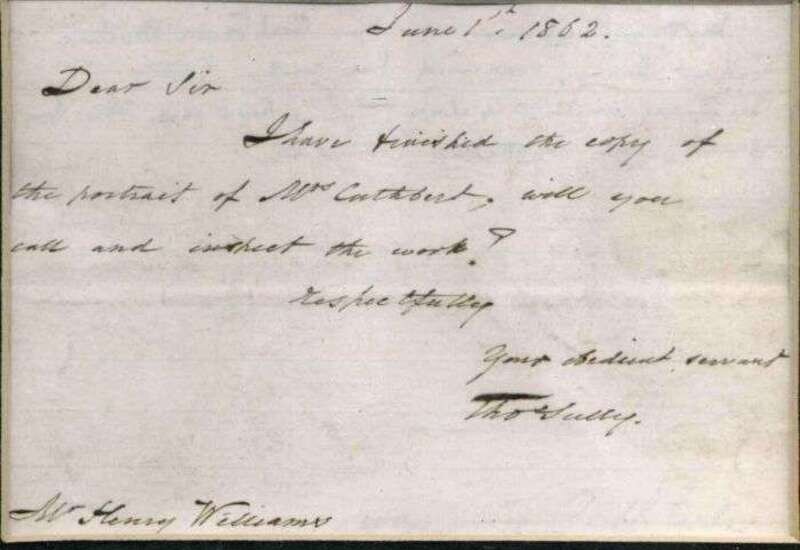 June 1st. 1862.
Dear Sir
I have finished the copy of
the portrait of Mrs Cuthbert, will you
call and inspect the work?
Respectfully
Your obedient servant
Thos Sully.
Mr Henry Williams